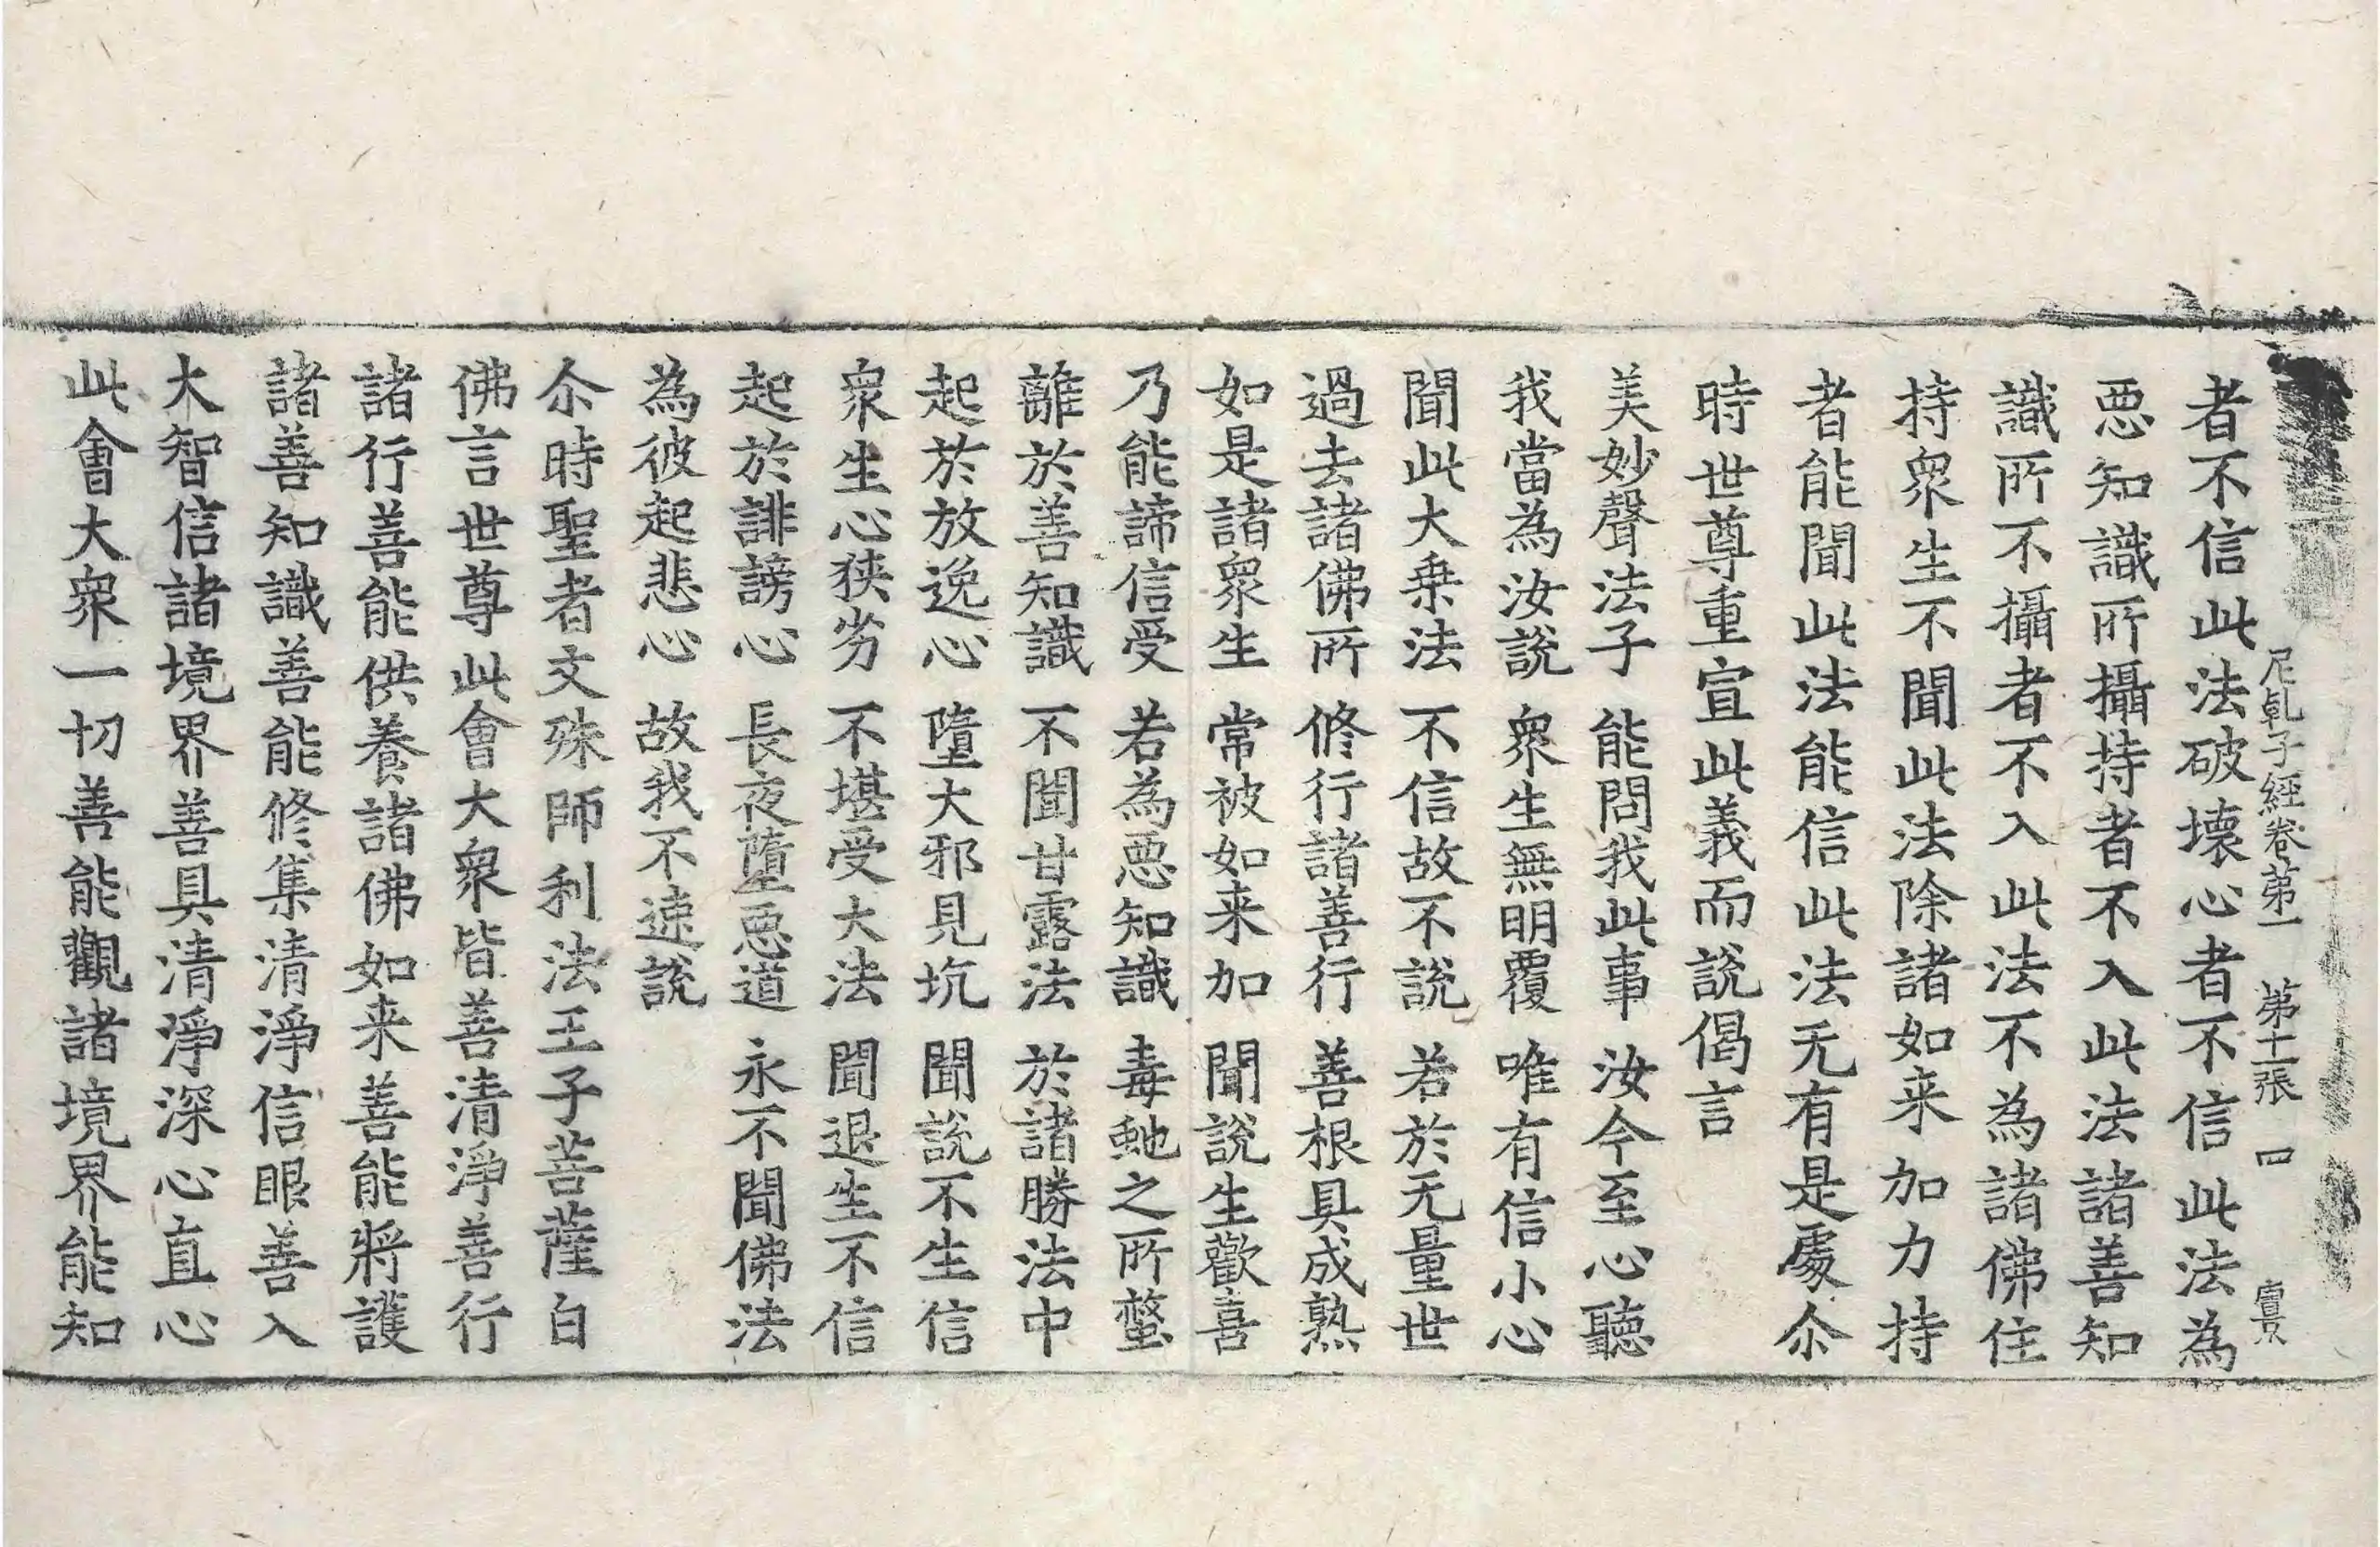 尼乹子經卷第一 第十二張 四 賔
者不信此法破壞心者不信此法為
惡知識所攝持者不入此法諸善知
識所不攝者不入此法不為諸佛住
持衆生不聞此法除諸如来加力持
者能聞此法能信此法无有是處尒
時世尊重宣此義而說偈言
美妙聲法子 能問我此事 汝今至心聽
我當為汝說 衆生無明覆 唯有信小心
聞此大乗法 不信故不說 若於无量世
過去諸佛所 修行諸善行 善根具成熟
如是諸衆生 常被如来加 聞說生歡喜
乃能諦信受 若為惡知識 毒虵之所螫
離於善知識 不聞甘露法 於諸勝法中
起於放逸心 墮大邪見坑 聞說不生信
衆生心狹劣 不堪受大法 聞退生不信
起於誹謗心 長夜墮惡道 永不聞佛法
為彼起悲心 故我不速說
尒時聖者文殊師利法王子菩薩白
佛言世尊此會大衆皆善清淨善行
諸行善能供養諸佛如来善能將護
諸善知識善能修集清淨信眼善入
大智信諸境界善具清淨深心直心
此會大衆一切善能觀諸境界能知